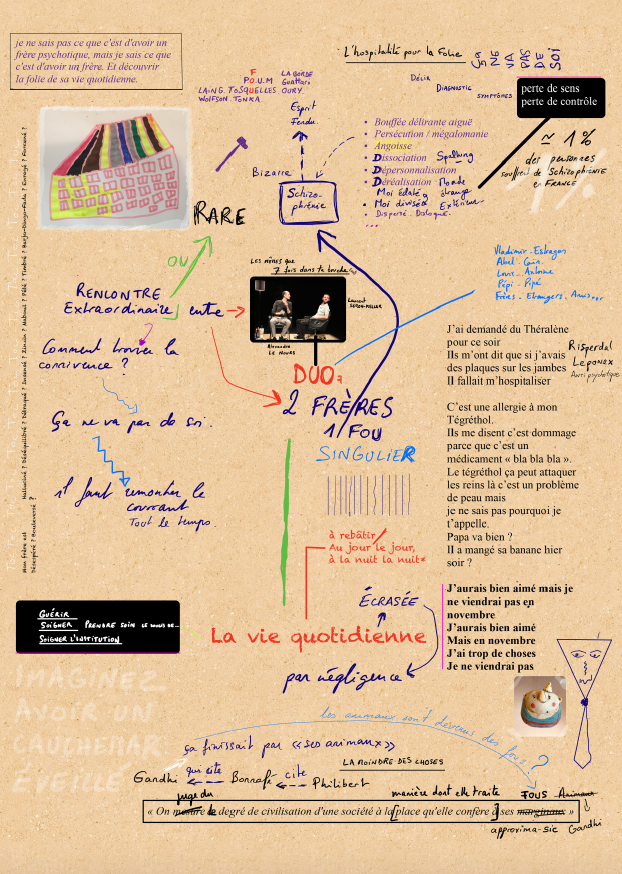 je ne sais pas ce que c'est d'avoir un
frère psychotique, mais je sais ce que
c'est d'avoir un frère. Et découvrir
la folie de sa vie quotidienne.
L'hospitalité pour la Folie
ÇA NE VA PAS DE SOI
DÉLIA
DIAGNOSTIC
SYMPTÔMES
perte de sens
perte de contrôle
≃ 1%
des personnes
souffrent de Schizophrénie
en FRANCE
F
POUM
LAING. TOSQUELLES OURY.
WOLFSON. TONKA.
LA BORDE
Guattari
Esprit
Fendu.
Bizarre
Schizo-
phrénie
RARE
• Bouffée délirante aiguë
• Persécution / mégalomanie
• Angoisse
• Dissociation Spaltung
• Dépersonnalisation
• Déréalisation Monde étrange
• Moi éclaté
• Moi divisé Extérieur
• Disparse. Dialogue.
...
Vladimir. Estragon
Abel. Caïn.
Louis. Antoine
Pépi. Pipé
Frères. Etrangers. Amis...
OU
RENCONTRE
Extraordinaire entre
LES MÊMES QUE
7 fois dans ta bouche
Laurent
Alexandre
LE NOURS
DUO
2 FRÈRES
1 FOU
SINGULIER
Comment trouver la
connivence ?
Ça ne va pas de soi.
il faut remonter le
courant
Tout le temps.
J'ai demandé du Théralène
pour ce soir
Ils m'ont dit que si j'avais
des plaques sur les jambes
Il fallait m'hospitaliser
Risperdal
Leponex
Anti psychotique
C'est une allergie à mon
Tégréthol.
Ils me disent c'est dommage
parce que c'est un
médicament « bla bla bla ».
Le tégréthol ça peut attaquer
les reins là c'est un problème
de peau mais
je ne sais pas pourquoi je
t'appelle.
Papa va bien ?
Il a mangé sa banane hier
soir ?
à rebâtir
Au jour le jour,
à la nuit la nuit*
ÉCRASÉE
La vie quotidienne
par négligence
J'aurais bien aimé mais je
ne viendrai pas en
novembre
J'aurais bien aimé
Mais en novembre
J'ai trop de choses
Je ne viendrai pas
GUÉRIR
SOIGNER PRENDRE SOIN
SOIGNER L'INSTITUTION
Mon frère est
Désespéré ? Bouleversé ?
IMAGINEZ
AVOIR UN
CAUCHEMAR
ÉVEILLÉ
les animaux sont devenus des fous ?
ça finissait par « ses animaux »
LA MOINDRE DES CHOSES
Gandhi qui cite Bonnafé cite Philibert
juge du
manière dont elle traite
FOUS Animaux
« On mesure le degré de civilisation d'une société à la [place qu'elle confère à] ses marginaux »
approxima-sic Gandhi